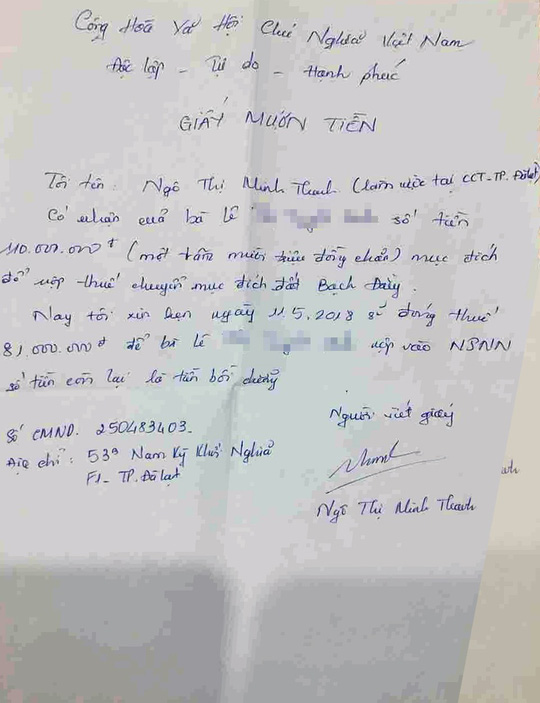 Cộng Hoà Xã Hội Chủ Nghĩa Việt Nam
Độc lập - Tự do - Hạnh phúc
GIẤY MƯỢN TIỀN
Tôi tên: Ngô Thị Minh Thanh (làm việc tại CCT-TP. Đà lạt)
Có nhận của bà lê số tiền
110.000.000đ (một trăm mười triệu đồng chẵn) mục đích
để nộp thuế chuyển mục đích đất Bạch Đằng.
Nay tôi xin hẹn ngày 11.5.2018 sẽ đóng thuế
81.000.000đ để bà lê nộp vào NSNN
số tiền còn lại là tiền bồi dưỡng
Người viết giấy
Số CMND. 250483403.
Địa chỉ: 53a Nam Kỳ Khởi Nghĩa
F1- TP. Đà lạt
Ngô Thị Minh Thanh